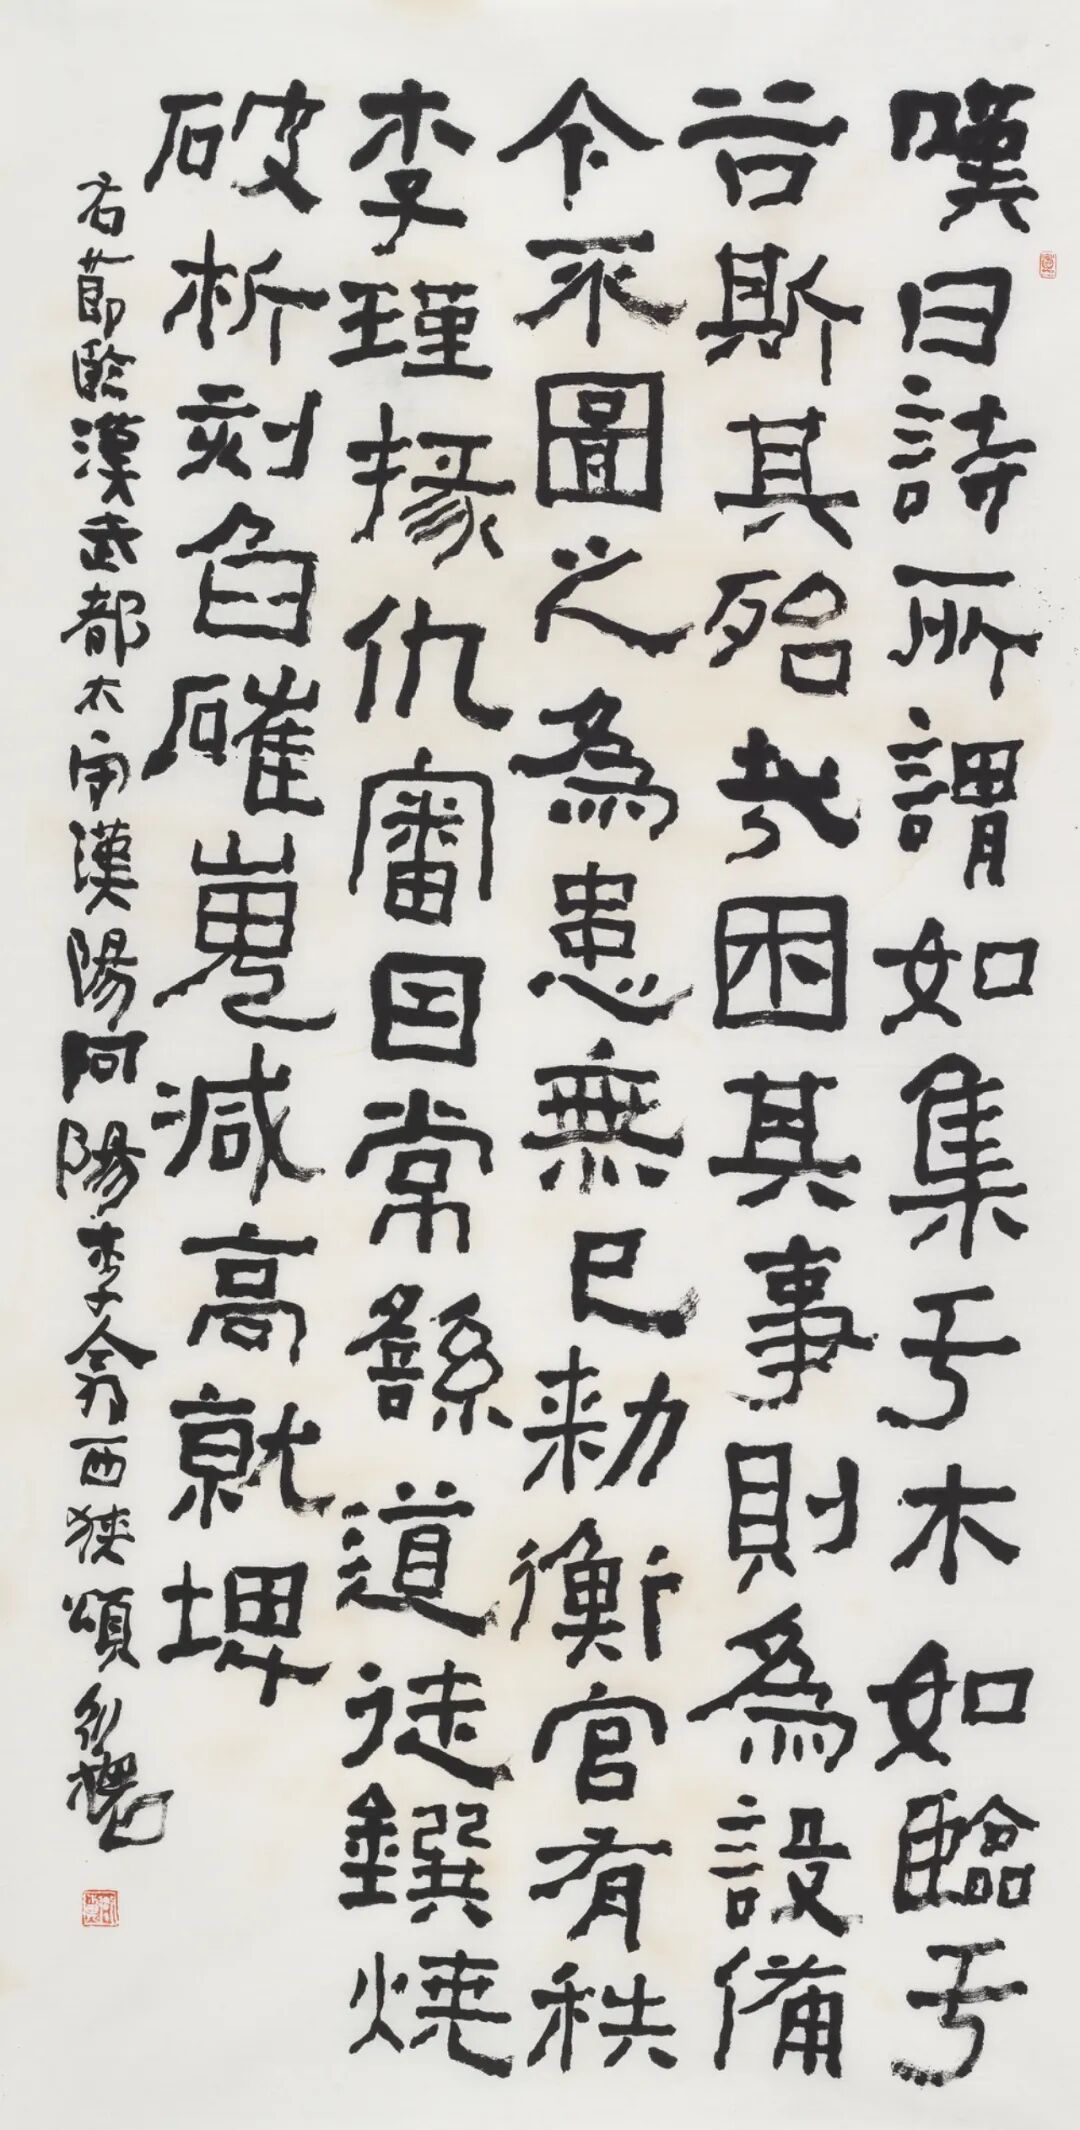 嘆曰詩所謂如集于木如臨于
谷斯其殆哉困其事則為設備
今不圖之為患無已勑衡官有秩
李瑾掾仇審因常繇道徒鐉燒
破析刻臽磪嵬減高就埤
右節臨漢武都太守漢陽阿陽李翕西狹頌